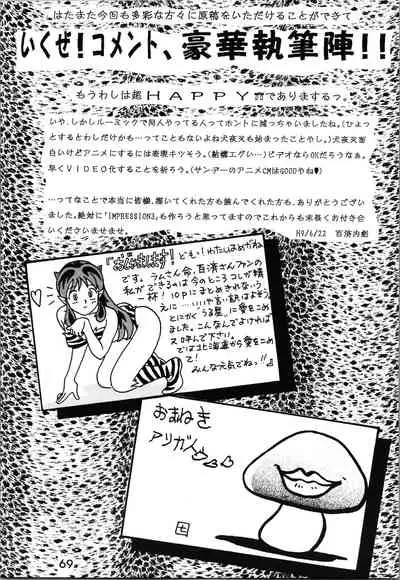 はたまた今回も多彩な方々に原稿をいただけることができて
いくぜ!コメント、豪華執筆陣!!
もうわしは超HAPPYでありまするっ。
いや、しかしルーミックで同人やってる人ってホントに減っちゃいましたね。(ひょっ
とするとわしだけかも…ってこともないよね犬夜天も始まったことやし。)犬夜天面
白いけどアニメにするには表現キツそう。(結構エグい…)ビデオならOKだろうなぁ。
早くVIDEO化することを祈ろう。(サンデーのアニメCMはGOODやね♥)
…ってなことで本当に皆様、描いてくれた方も読んでくれた方も、ありがとうござい
ました。絶対に「IMPRESSION3」も作ろうと思ってますのでこれからも末長くお付き合
いくださいませ。
H9/6/22 百済内創
おじゃまします!
ども〜!わたしはめがね
です。らんさん命、百済さんファンの
私ができるのは今のところコレが精
一杯!10Pにまとめきれないう
えに…いいや言い訳はよそう。
とにかく"うる星"に愛をこめ
ました。こんなんでよければ
ス呼んで下さい。
では北海道から愛をこめ
て!
みんな元気でねっ!!
おまねき
アリガトウ
69